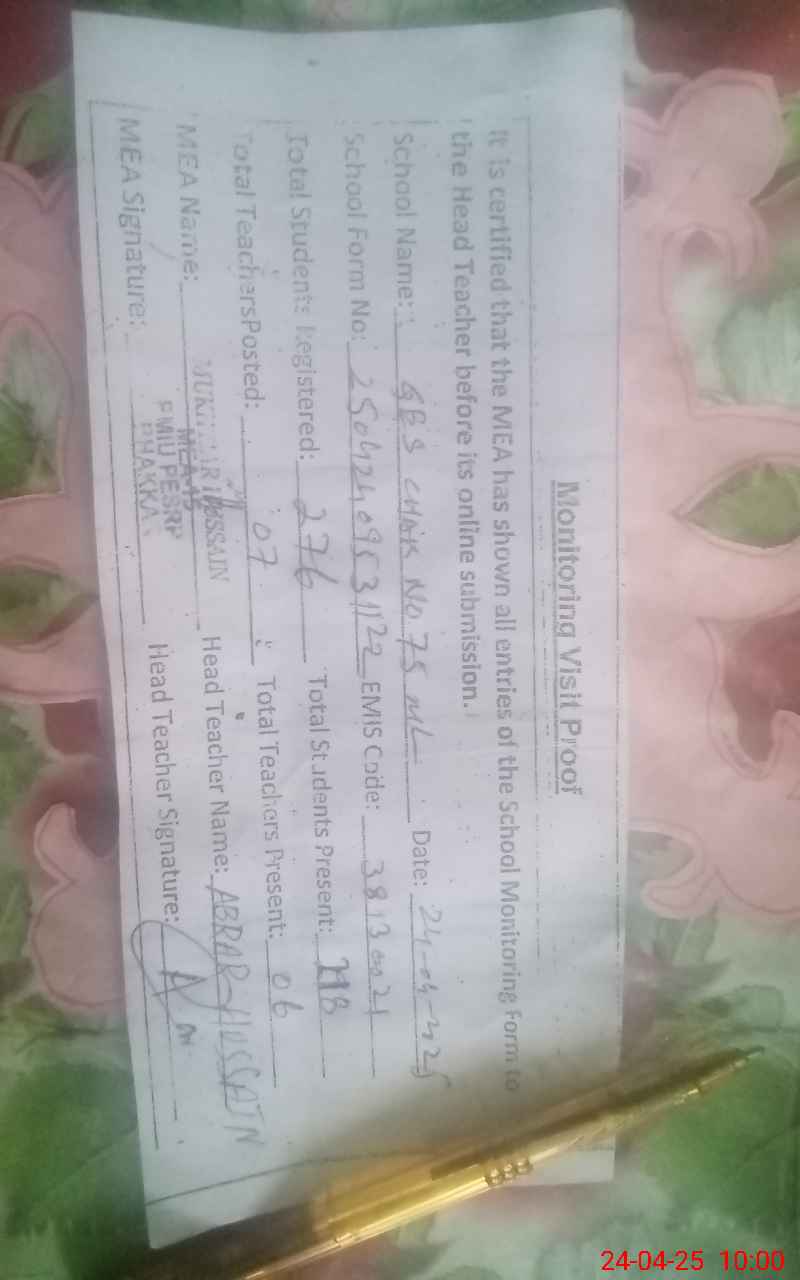 Monitoring Visit Proof
It is certified that the MEA has shown all entries of the School Monitoring Form to
the Head Teacher before its online submission.
School Name: GES CHAK No. 75 ML Date: 24-04-2025
School Form No: EMIS Code: 38130021
Total Students Registered: 276 Total Students Present: 218
Total Teachers Posted: 07 Total Teachers Present: 06
MEA Name: HUSSAIN Head Teacher Name: ABRAR HUSSAIN
MEA Signature: PMIU PESRP Head Teacher Signature:
24-04-25 10:00